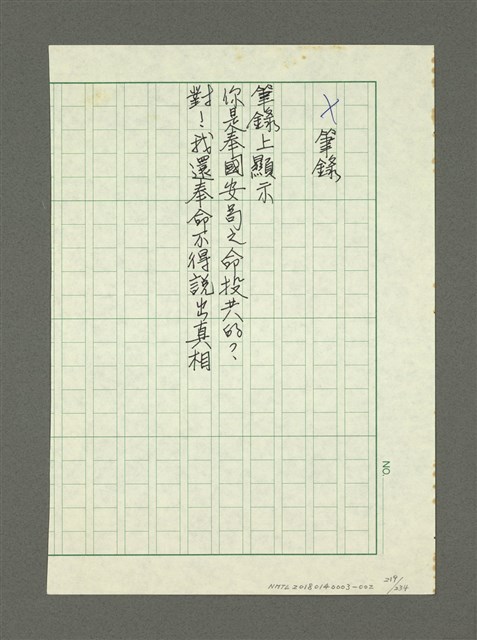 筆錄
筆錄上顯示
你是奉國安局之命投共的？
對！我還奉命不得說出真相
NO.
NMTL20180140003-002
219/234